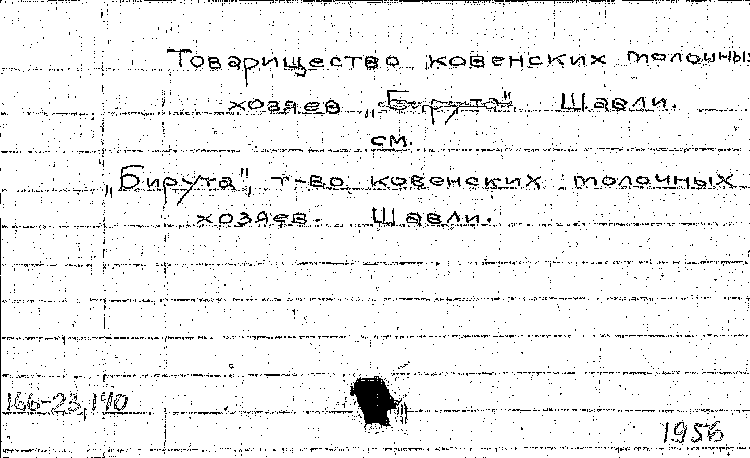 Товарищество ковенских молочных
хозяев „Бирута". Шавли.
см.
„Бирута", т-во ковенских молочных
хозяев. Шавли.
166-23,140
1956